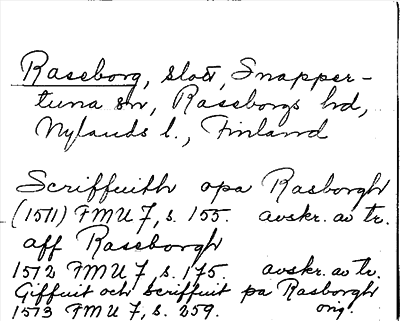 Raseborg, slott, Snapper-
tuna sn, Raseborgs hd,
Nylands l., Finland
Scriffuith opa Rasborgh
(1511) FMU 7, s. 155. avskr. av tr.
aff Raseborgh
1512 FMU 7, s. 175. avskr. av tr.
Giffuit och scriffuit pa Rasborgh
1513 FMU 7, s. 259. orig.